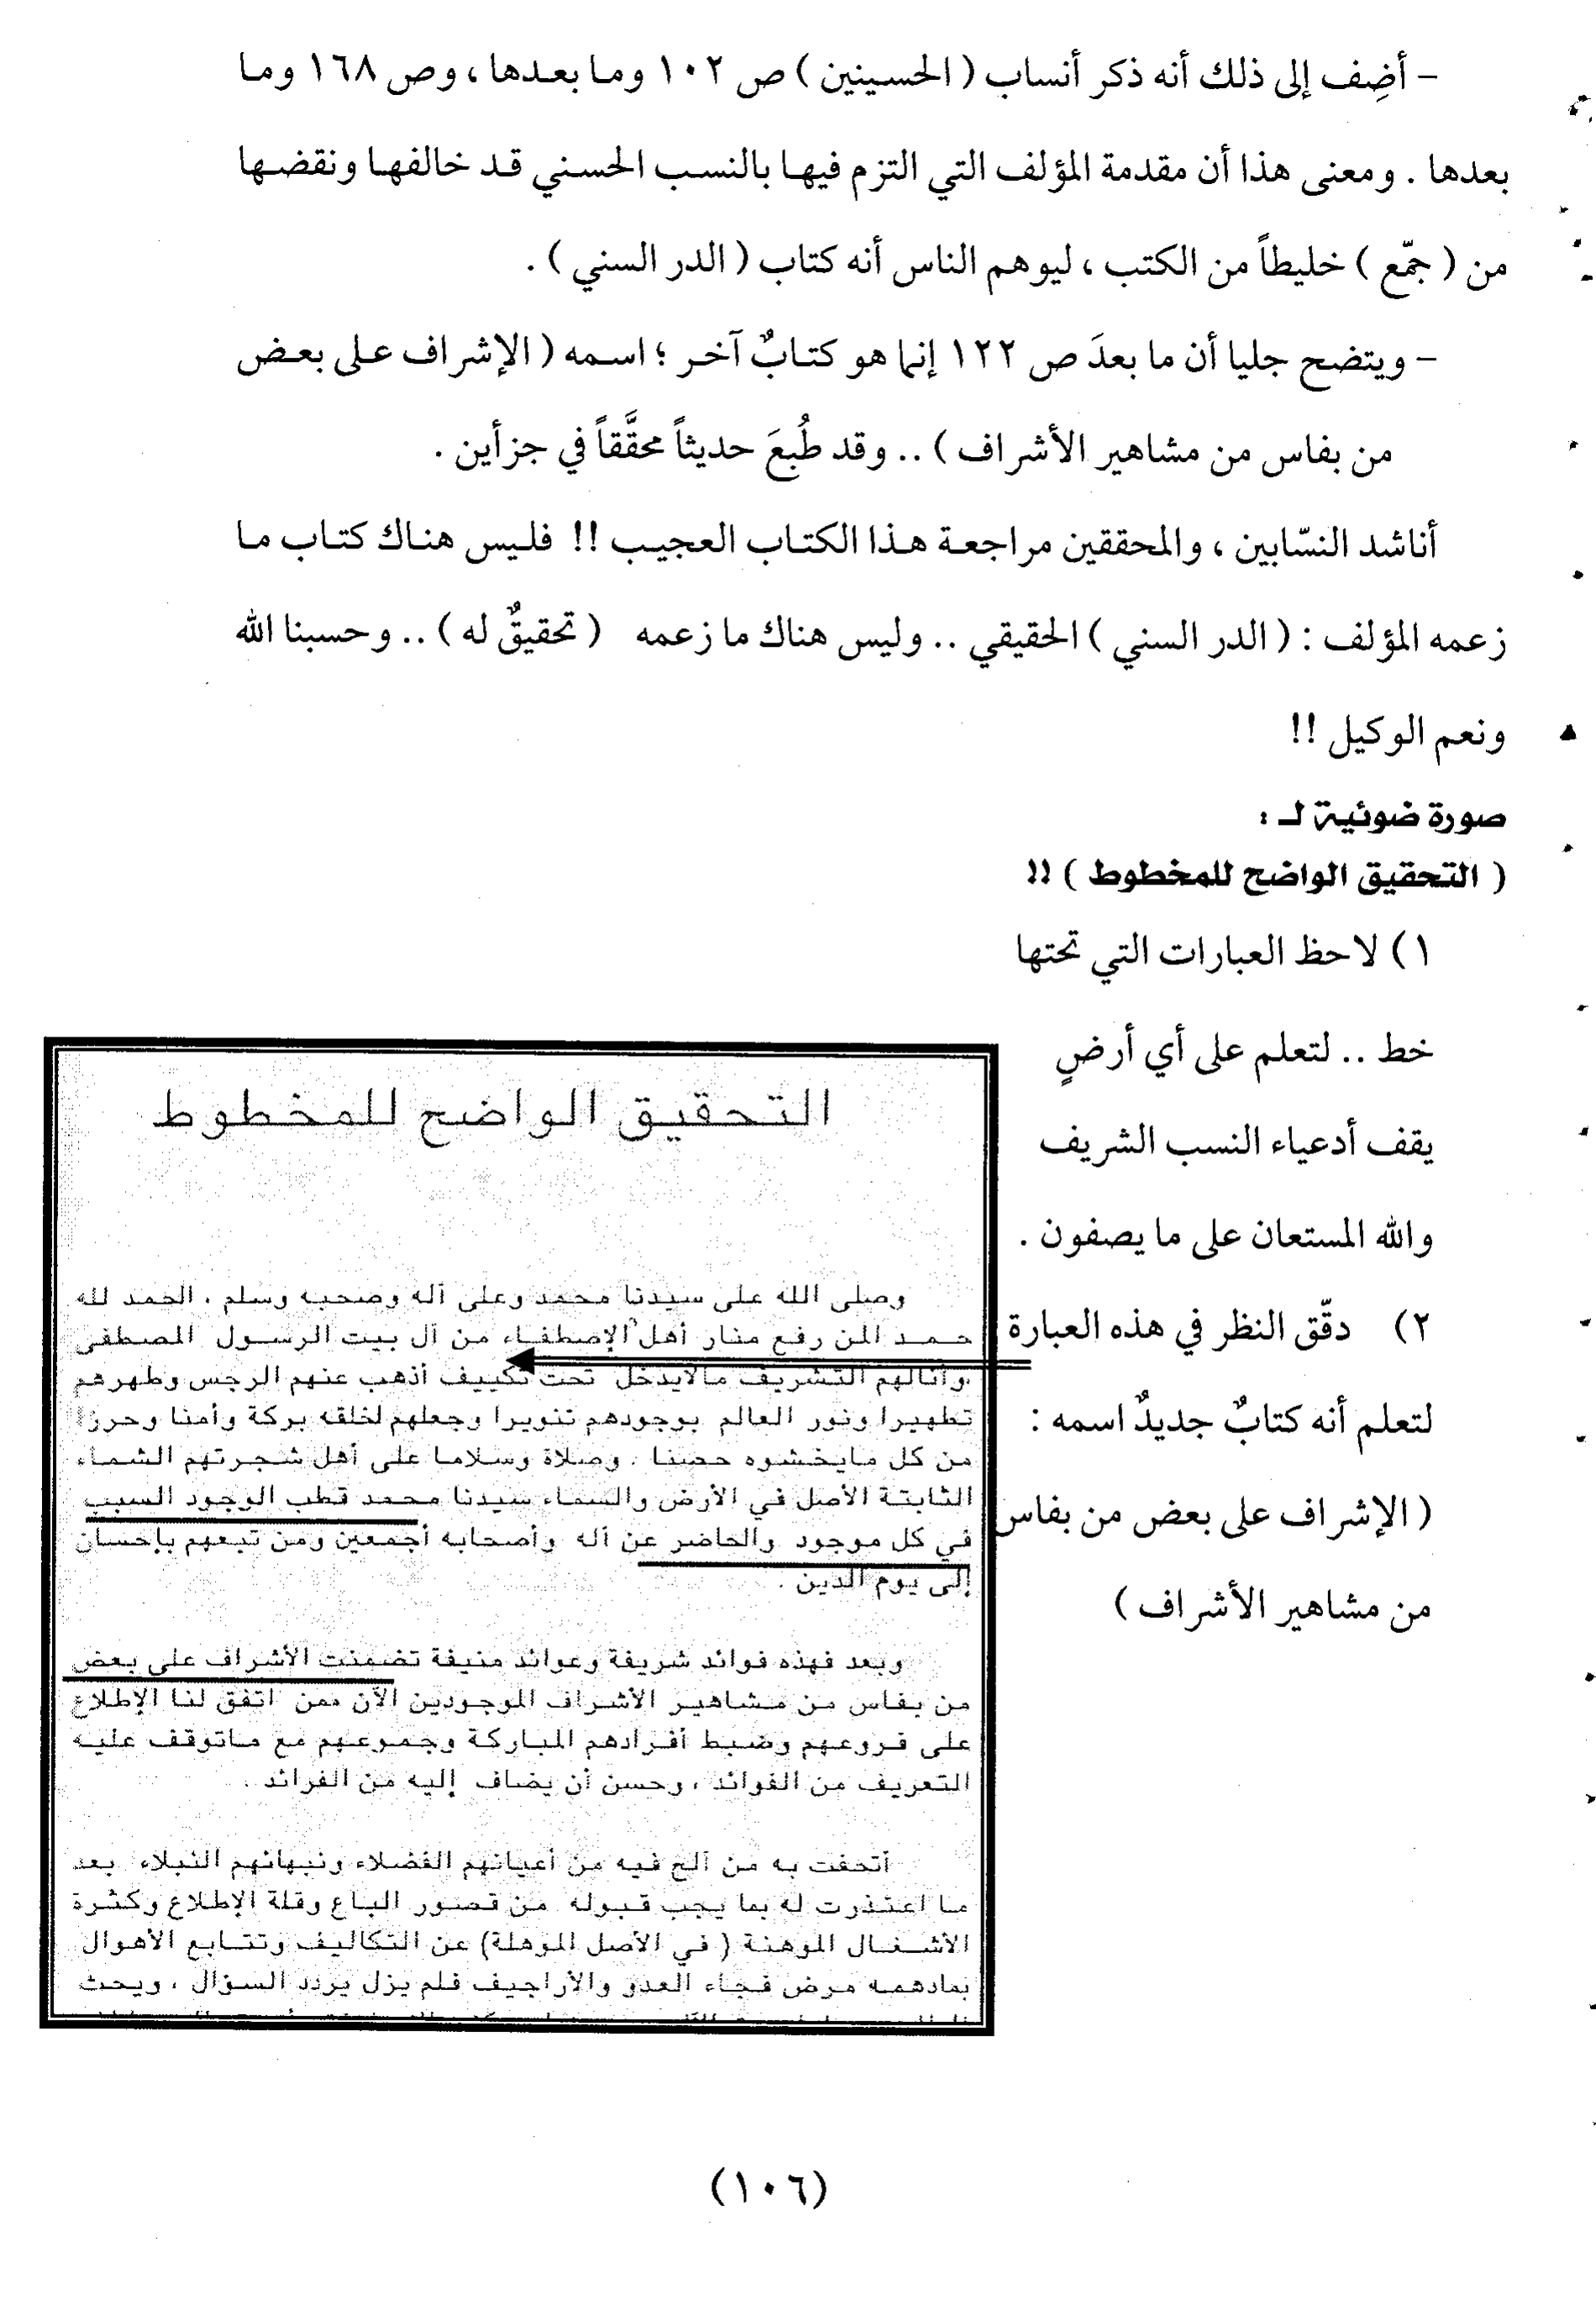 – أضِف إلى ذلك أنه ذكر أنساب ( الحسينين ) ص ١٠٢ وما بعدها ، وص ١٦٨ وما
بعدها . ومعنى هذا أن مقدمة المؤلف التي التزم فيها بالنسب الحسني قد خالفها ونقضها
من ( جمّع ) خليطاً من الكتب ، ليوهم الناس أنه كتاب ( الدر السني ) .
– ويتضح جليا أن ما بعدَ ص ١٢٢ إنما هو كتابٌ آخر ؛ اسمه ( الإشراف على بعض
من بفاس من مشاهير الأشراف ) .. وقد طُبعَ حديثاً محقَّقاً في جزأين .
أناشد النسّابين ، والمحققين مراجعة هذا الكتاب العجيب !! فليس هناك كتاب ما
زعمه المؤلف : ( الدر السني ) الحقيقي .. وليس هناك ما زعمه ( تحقيقٌ له ) .. وحسبنا الله
ونعم الوكيل !!
صورة ضوئية لـ :
( التحقيق الواضح للمخطوط ) !!
١) لاحظ العبارات التي تحتها
خط .. لتعلم على أي أرضٍ
يقف أدعياء النسب الشريف
والله المستعان على ما يصفون .
٢) دقّق النظر في هذه العبارة
لتعلم أنه كتابٌ جديدٌ اسمه :
( الإشراف على بعض من بفاس
من مشاهير الأشراف )
التحقيق الواضح للمخطوط
وصلى الله على سيدنا محمد وعلى آله وصحبه وسلم ، الحمد لله
حمد المن رفع منار أهل الإصطفاء من آل بيت الرسول المصطفى
وأنالهم التشريف مالايدخل تحت تكييف أذهب عنهم الرجس وطهرهم
تطهيرا ونور العالم بوجودهم تنويرا وجعلهم لخلقه بركة وأمنا وحرزا
من كل مايخشوه حصنا . وصلاة وسلاما على أهل شجرتهم الشماء
الثابتة الأصل في الأرض والسماء سيدنا محمد قطب الوجود السبب
في كل موجود والحاضر عن آله وأصحابه أجمعين ومن تبعهم بإحسان
إلى يوم الدين .
وبعد فهذه فوائد شريفة وعوائد منيفة تضمنت الأشراف على بعض
من بفاس من مشاهير الأشراف الموجودين الآن ممن اتفق لنا الإطلاع
على فروعهم وضبط أفرادهم المباركة وجموعهم مع ماتوقف عليه
التعريف من الفوائد ، وحسن أن يضاف إليه من الفرائد .
أتحفت به من ألح فيه من أعيانهم الفضلاء ونبهائهم النبلاء بعد
ما اعتذرت له بما يجب قبوله من قصور الباع وقلة الإطلاع وكثرة
الأشغال الموهنة ( في الأصل الموهلة) عن التكاليف وتتابع الأهوال
بمادهمه مرض فجاء العدو والأراجيف فلم يزل يردد السؤال ، ويحث
(١٠٦)